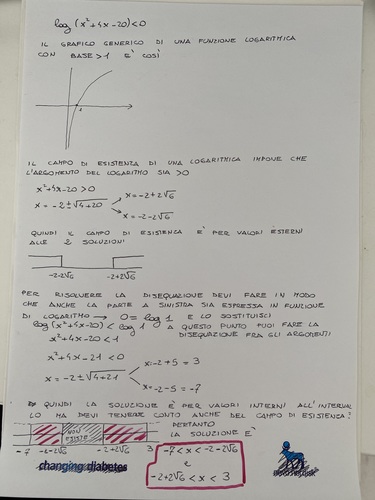 log (x²+4x-20)<0
IL GRAFICO GENERICO DI UNA FUNZIONE LOGARITMICA
CON BASE>1 E' COSÌ
1
IL CAMPO DI ESISTENZA DI UNA LOGARITMICA IMPONE CHE
L'ARGOMENTO DEL LOGARITMO SIA >0
x²+4x-20>0
x = -2±√4+20
x = -2+2√6
x = -2-2√6
QUINDI IL CAMPO DI ESISTENZA E' PER VALORI ESTERNI
ALLE 2 SOLUZIONI
-2-2√6 -2+2√6
PER RISOLVERE LA DISEQUAZIONE DEVI FARE IN MODO
CHE ANCHE LA PARTE A SINISTRA SIA ESPRESSA IN FUNZIONE
DI LOGARITMO → 0 = log 1 E LO SOSTITUISCI
log(x²+4x-20) < log 1 A QUESTO PUNTO PUOI FARE LA
DISEQUAZIONE FRA GLI ARGOMENTI
x²+4x-20 < 1
x²+4x-21 < 0
x = -2±√4+21
x = -2+5 = 3
x = -2-5 = -7
QUINDI LA SOLUZIONE E' PER VALORI INTERNI ALL'INTERVAL
LO MA DEVI TENERE CONTO ANCHE DEL CAMPO DI ESISTENZA:
NON
ESISTE
-7 -2-2√6 -2+2√6 3
PERTANTO
LA SOLUZIONE E'
-7 < x < -2-2√6
e
-2+2√6 < x < 3
changing diabetes